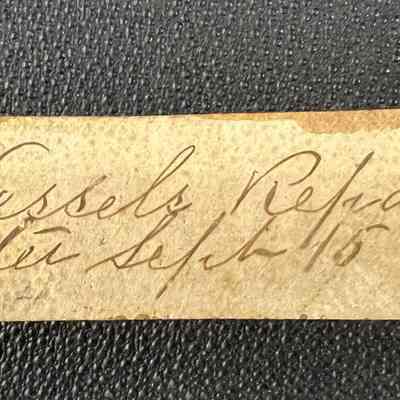 Vessels Repa
ter Sept 15